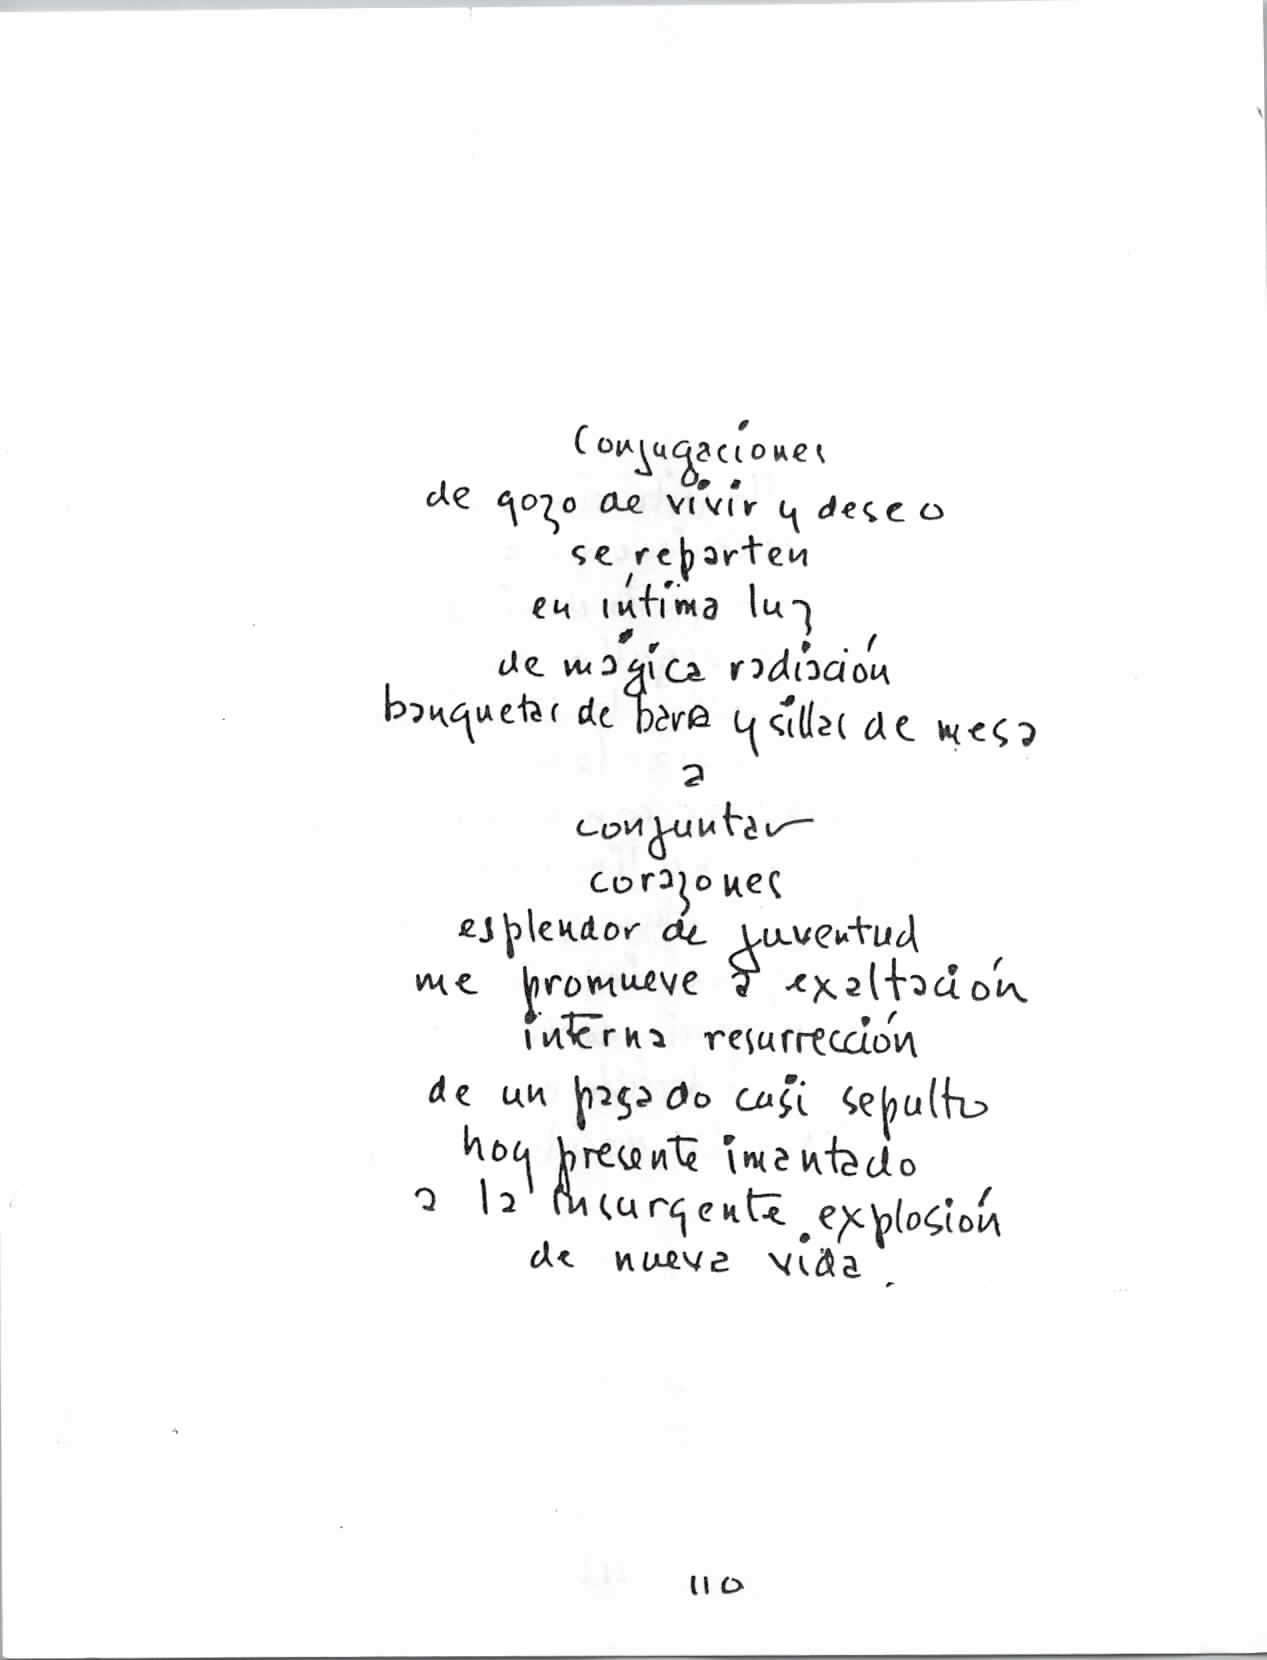 Conjugaciones
de gozo de vivir y deseo
se reparten
en íntima luz
de mágica radiación
banquetas de bara y sillas de mesa
a
conjuntar
corazones
esplendor de juventud
me promueve a exaltación
interna resurrección
de un pasado casi sepulto
hoy presente imantado
a la insurgente explosión
de nueva vida.
110